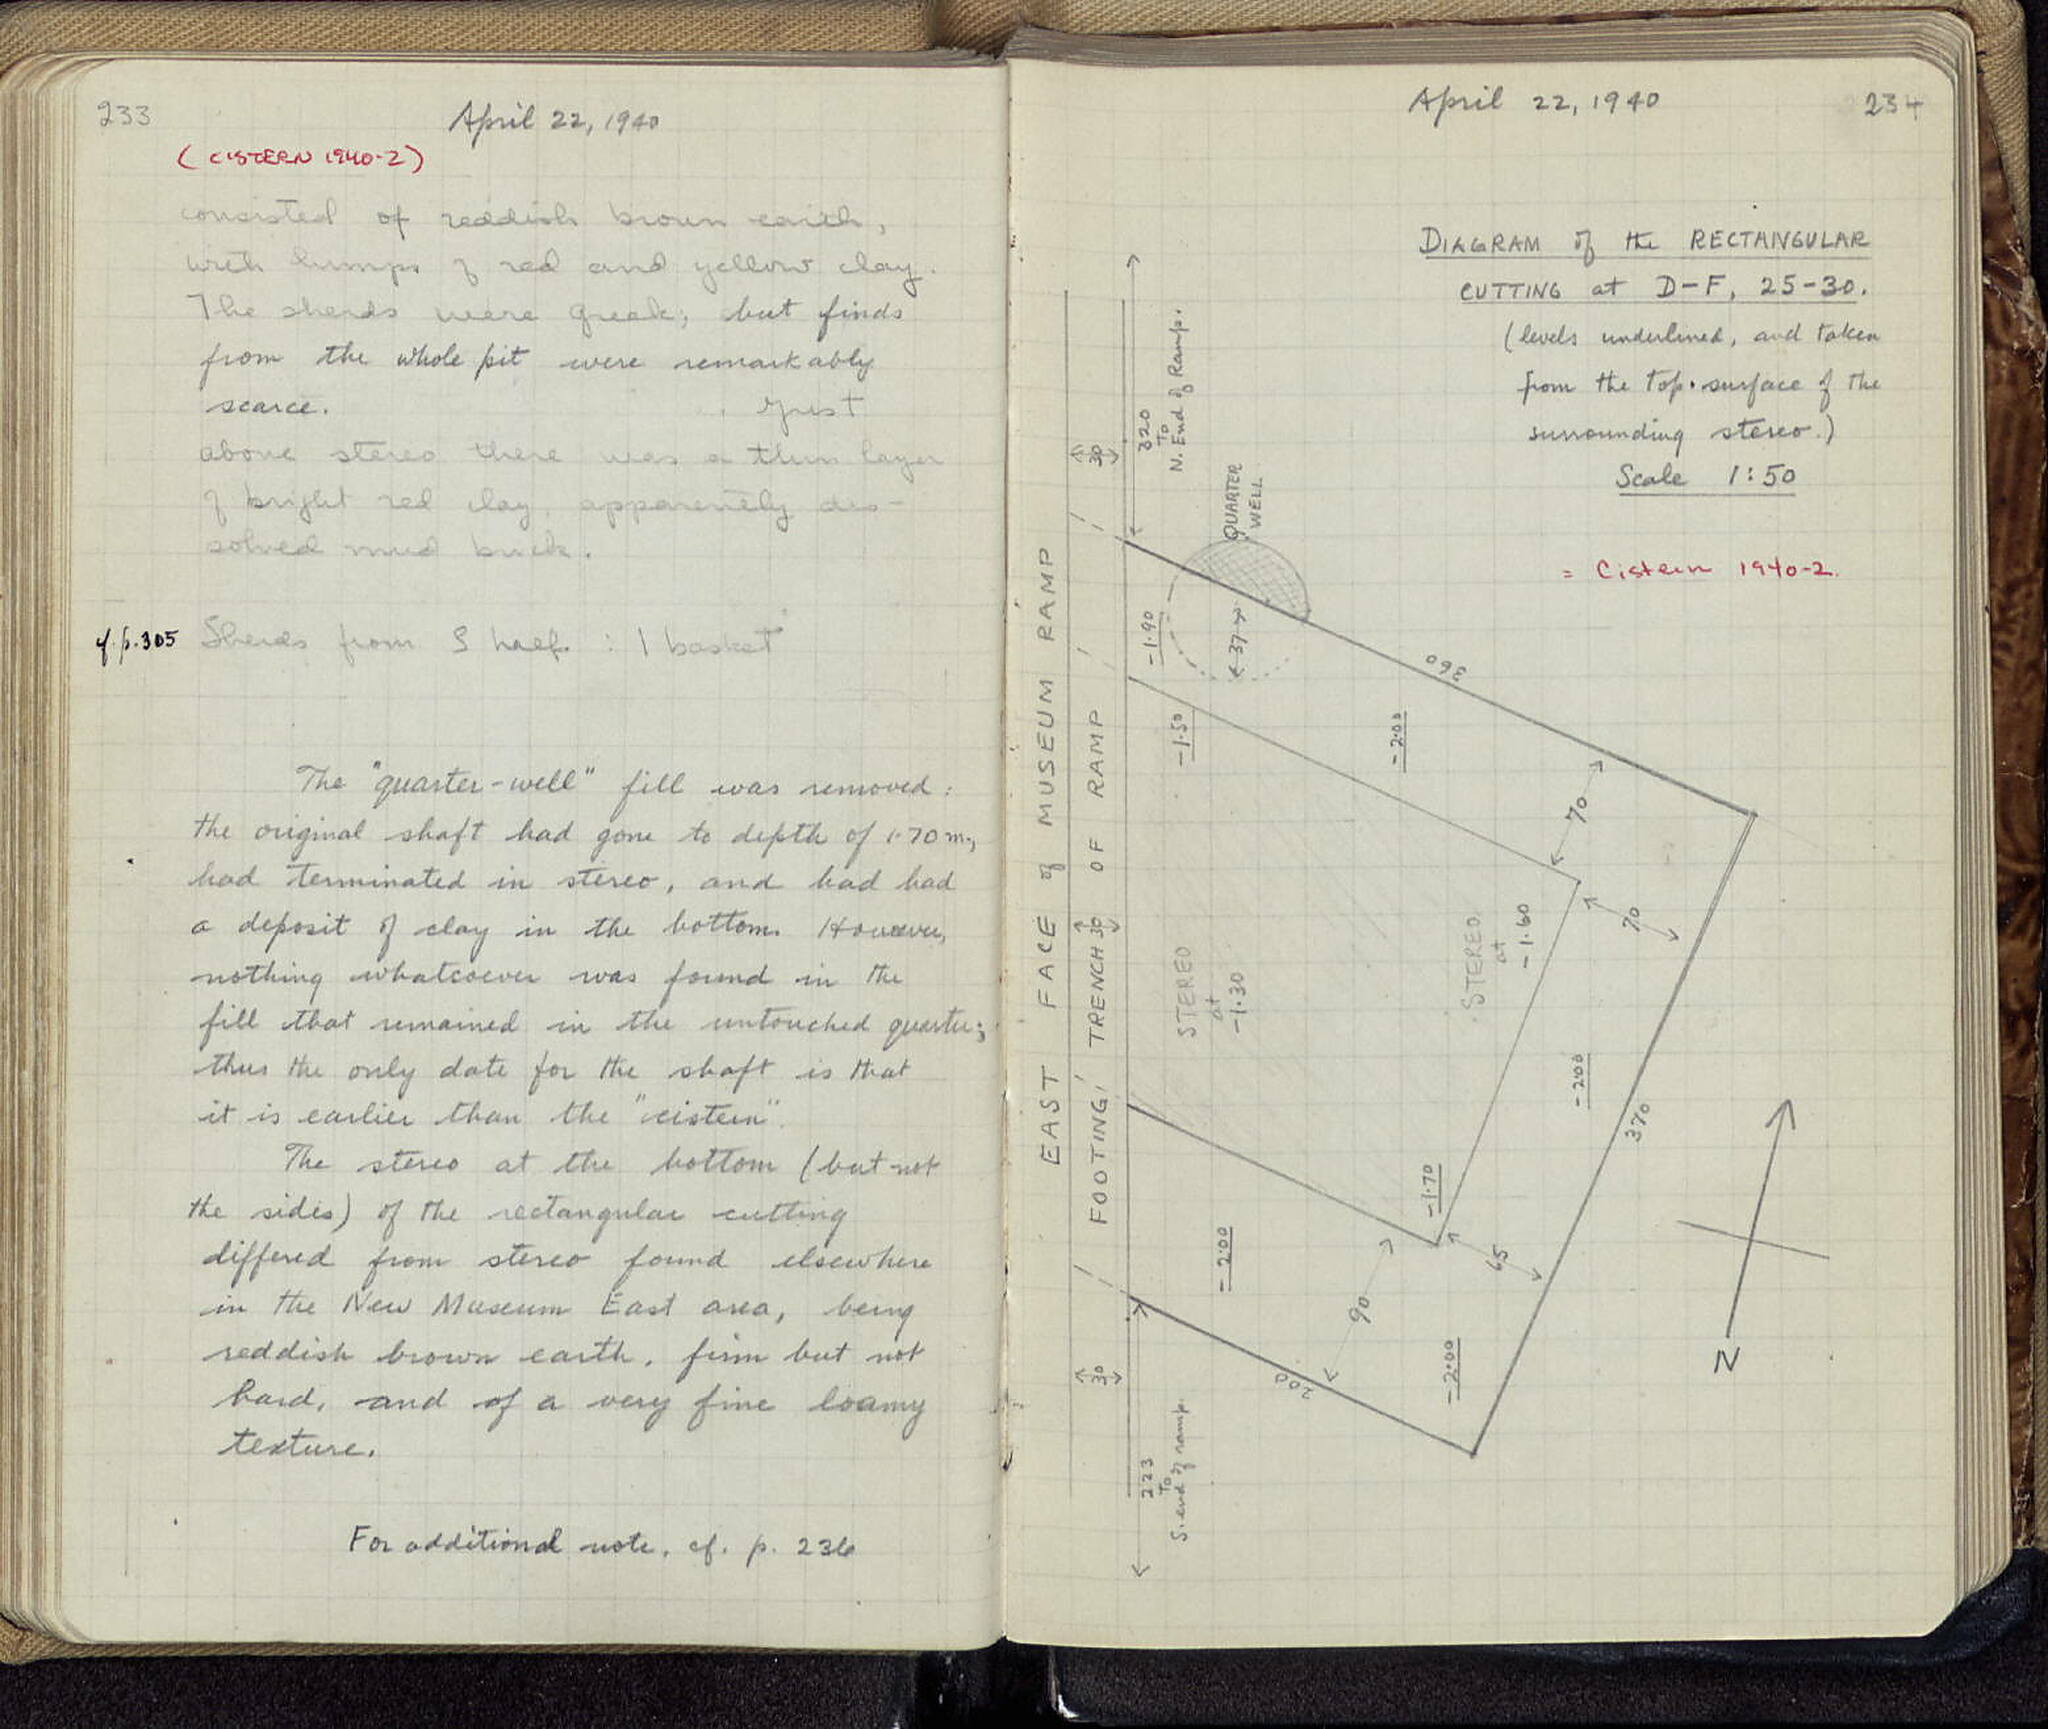 233
April 22, 1940
(CISTERN 1940-2)
consisted of reddish brown earth,
with lumps of red and yellow clay.
The sherds were Greek; but finds
from the whole pit were remarkably
scarce. Just
above stereo there was a thin layer
of bright red clay, apparently dis-
solved mud brick.
cf. p. 305 Sherds from S half : 1 basket
The "quarter-well" fill was removed:
the original shaft had gone to depth of 1.70 m.,
had terminated in stereo, and had had
a deposit of clay in the bottom. However,
nothing whatsoever was found in the
fill that remained in the untouched quarter;
thus the only date for the shaft is that
it is earlier than the "cistern".
The stereo at the bottom (but not
the sides) of the rectangular cutting
differed from stereo found elsewhere
in the New Museum East area, being
reddish brown earth, firm but not
hard, and of a very fine loamy
texture.
For additional note, cf. p. 236
April 22, 1940
234
DIAGRAM of the RECTANGULAR
CUTTING at D-F, 25-30.
(levels underlined, and taken
from the top surface of the
surrounding stereo.)
Scale 1:50
= Cistern 1940-2.
EAST FACE of MUSEUM RAMP
FOOTING TRENCH OF RAMP
30
30
30
320
To
N. End of Ramp.
QUARTER
WELL
37
-1.90
-1.50
-2.00
360
70
70
STEREO
at
-1.30
STEREO
at
-1.60
-2.00
370
-1.70
65
-2.00
90
-2.00
200
223
To
S. end of ramp.
N